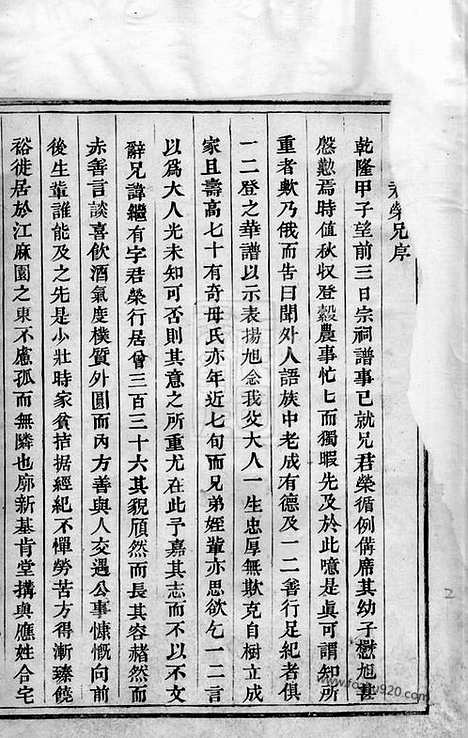 榮兄序
乾隆甲子望前三日宗祠譜事已就兄君榮循例備席其幼子懋旭甚
慇懃焉時值秋収登穀農事忙匕而獨暇先及於此噫是眞可謂知所
重者歟乃俄而告曰聞外人語族中老成有德及一二善行足紀者俱
一二登之華譜以示表揚旭念我父大人一生忠厚無欺克自樹立成
家且壽高七十有奇母氏亦年近七旬而兄弟姪輩亦思欲乞一二言
以爲大人光未知可否則其意之所重尤在此予嘉其志而不以不文
辭兄諱繼有字君榮行居曾三百三十六其貌頎然而長其容赭然而
赤善言談喜飲酒氣度樸質外圓而內方善與人交遇公事慷慨向前
後生輩誰能及之先是少壯時家貧拮据經紀不憚勞苦方得漸臻饒
裕徙居於江麻園之東不慮孤而無隣也廓新基肯堂搆與應姓合宅
2
www.fozhu920.com